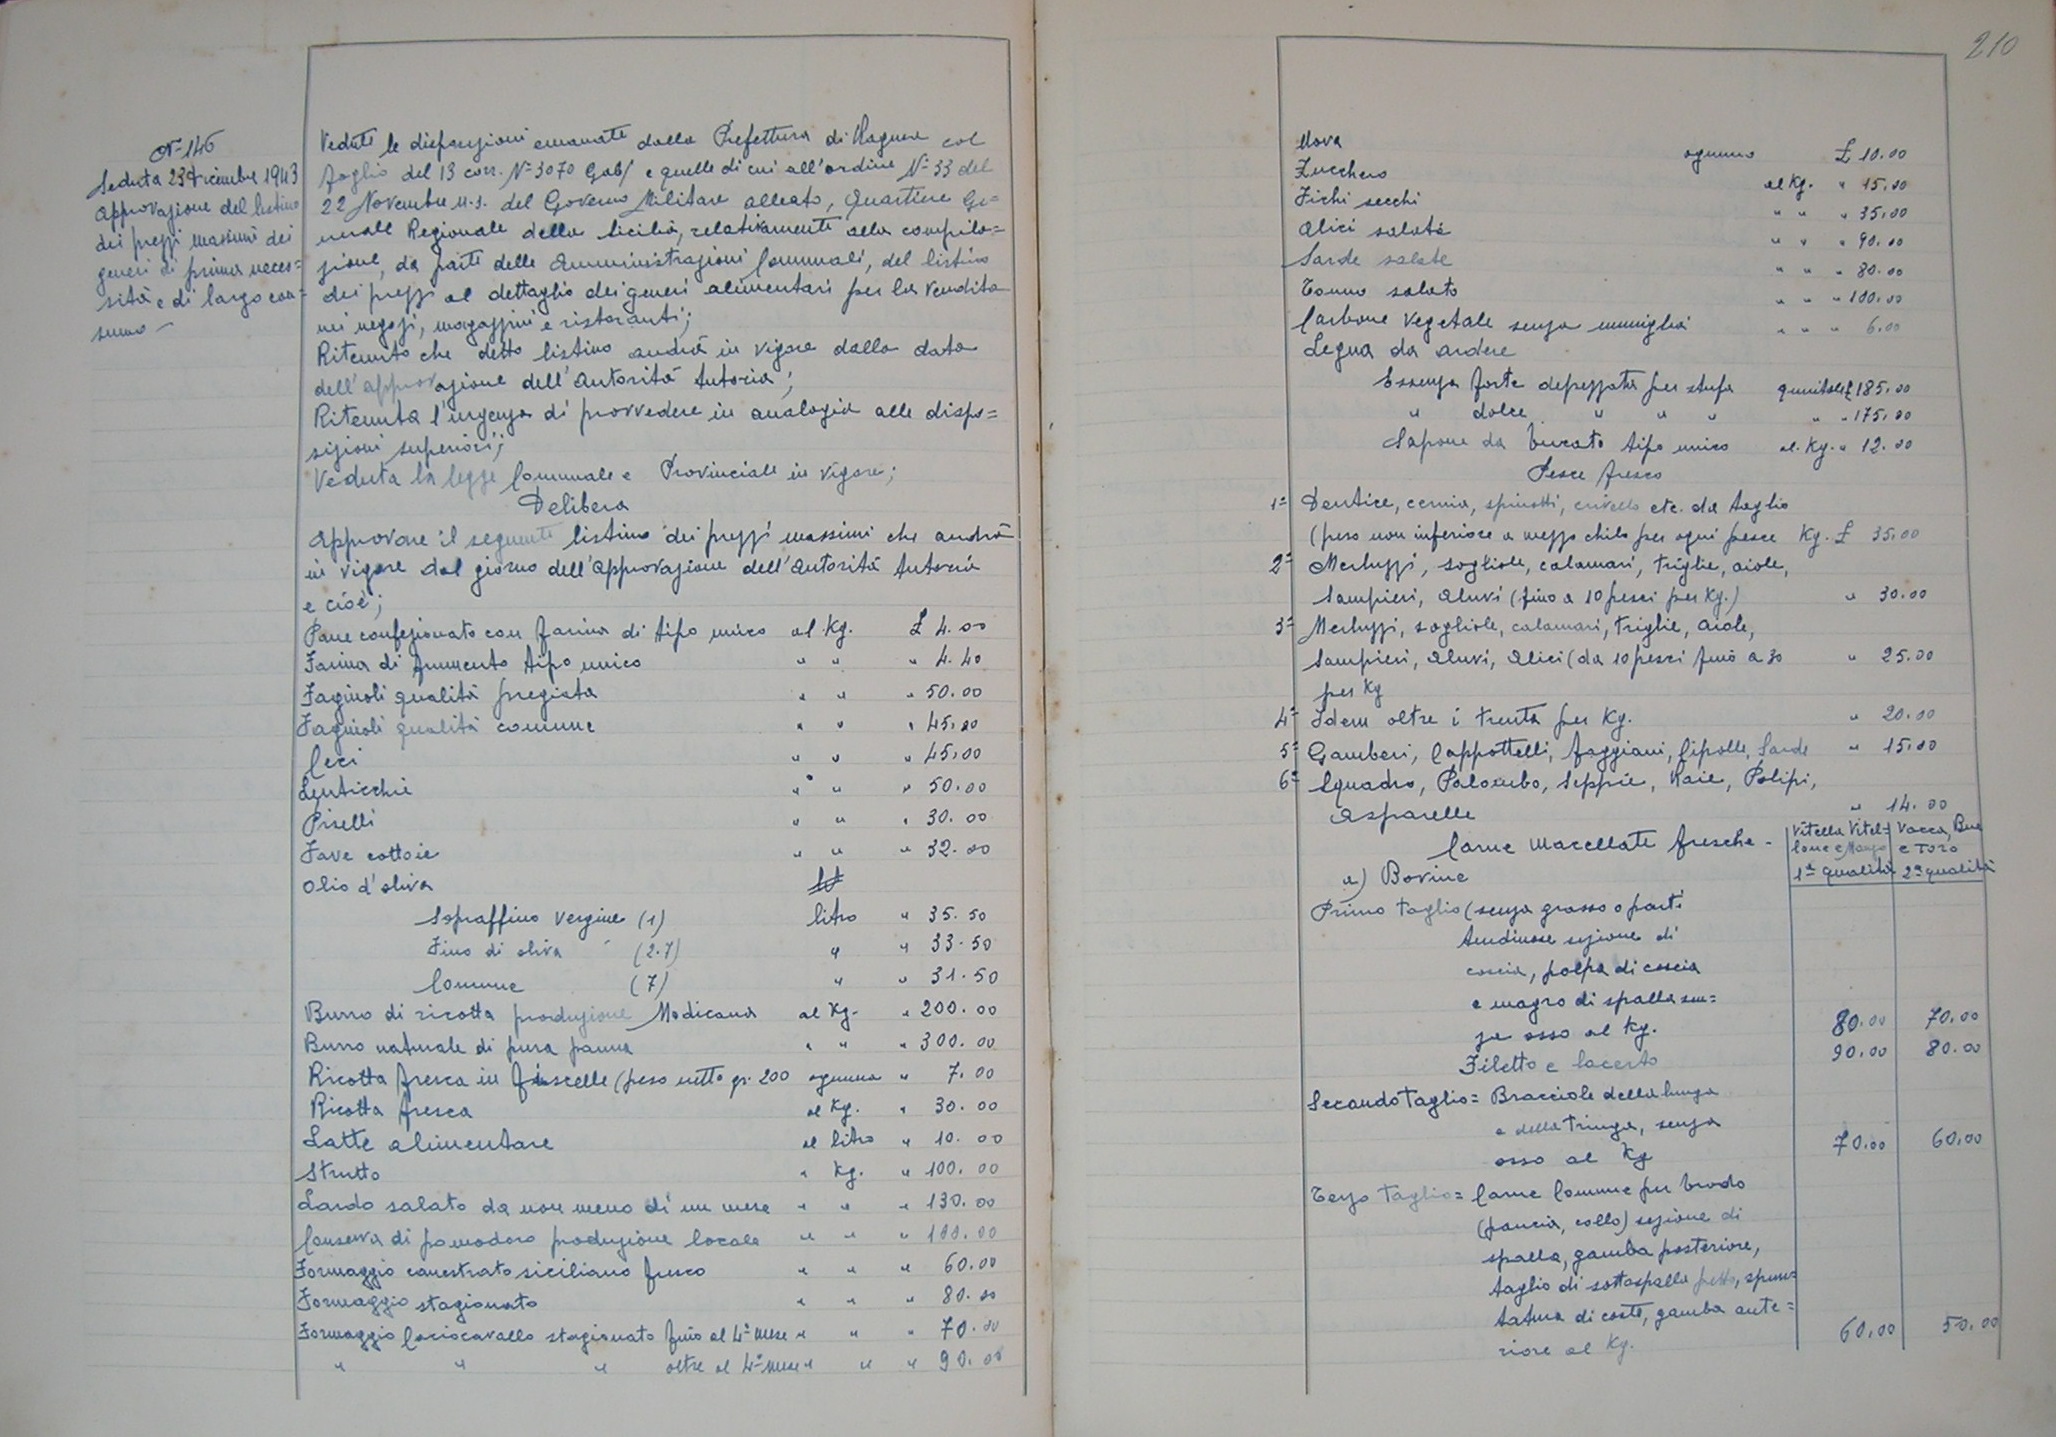 N° 146
Seduta 23 Dicembre 1943
Approvazione del listino
dei prezzi massimi dei
generi di prima neces=
sità e di largo con=
sumo -
Vedute le disposizioni emanate dalla Prefettura di Ragusa col
foglio del 13 corr. N° 3070 Gab/ e quelle di cui all'ordine N° 33 del
22 Novembre u.s. del Governo Militare alleato, Quartiere Ge=
nerale Regionale della Sicilia, relativamente alla compila=
zione, da parte delle Amministrazioni Comunali, del listino
dei prezzi al dettaglio dei generi alimentari per la vendita
nei negozi, magazzini e ristoranti;
Ritenuto che detto listino andrà in vigore dalla data
dell'approvazione dell'Autorità Tutoria;
Ritenuta l'urgenza di provvedere in analogia alle dispo=
sizioni superiori;
Veduta la legge Comunale e Provinciale in vigore;
Delibera
Approvare il seguente listino dei prezzi massimi che andrà
in vigore dal giorno dell'Approvazione dell'Autorità Tutoria
e cioè;
Pane confezionato con farina di tipo unico al Kg. £ 4.00
Farina di frumento tipo unico " " " 4.40
Fagiuoli qualità pregiata " " " 50.00
Fagiuoli qualità comune " " " 45.00
Ceci " " " 45.00
Lenticchie " " " 50.00
Piselli " " " 30.00
Fave cottoie " " " 32.00
Olio d'oliva
Sopraffino vergine (1) litro " 35.50
Fino di oliva (2.7) " " 33.50
Comune (7) " " 31.50
Burro di ricotta produzione Modicana al Kg. " 200.00
Burro naturale di pura panna " " " 300.00
Ricotta fresca in fiscelle (peso netto gr. 200 ognuna " 7.00
Ricotta fresca al Kg. " 30.00
Latte alimentare al litro " 10.00
Strutto " Kg. " 100.00
Lardo salato da non meno di un mese " " " 130.00
Conserva di pomodoro produzione locale " " " 100.00
Formaggio canestrato siciliano fresco " " " 60.00
Formaggio stagionato " " " 80.00
Formaggio Caciocavallo stagionato fino al 4° mese " " " 70.00
" " " oltre al 4° mese " " " 90.00
210
Uova ognuno £ 10.00
Zucchero al Kg. " 15.00
Fichi secchi " " " 35.00
Alici salate " " " 90.00
Sarde salate " " " 80.00
Tonno salato " " " 100.00
Carbone vegetale senza muniglia " " " 6.00
Legna da ardere
Essenza forte depezzata per stufa quintale £ 185.00
" dolce " " " " " 175.00
Sapone da bucato tipo unico al Kg. " 12.00
Pesce fresco
1° Dentice, cernia, spinotti, etc. da taglio
(peso non inferiore a mezzo chilo per ogni pesce Kg. £ 35.00
2° Merluzzi, sogliole, calamari, triglie, aiole,
Sampieri, Aluvi (fino a 10 pesci per Kg.) " 30.00
3° Merluzzi, sogliole, calamari, triglie, aiole,
Sampieri, Aluvi, Alici (da 10 pesci fino a 30 " 25.00
per Kg
4° Idem oltre i trenta per Kg. " 20.00
5° Gamberi, Cappottelli, faggiani, Cipolle, Sarde " 15.00
6° Squadro, Palombo, Seppie, Raie, Polipi,
Asparelle " 14.00
Carne macellate fresche -
Vitella Vitel= Vacca, Bue
lone e Manzo e Toro
1ª qualità 2ª qualità
a) Bovine
Primo taglio (senza grasso o parti
tendinose sezione di
coscia, polpa di coscia
e magro di spalla sen=
za osso al Kg. 80.00 70.00
Filetto e lacerto 90.00 80.00
Secondo taglio = Bracciole della lunga
e della tringa, senza
osso al Kg 70.00 60.00
Terzo taglio = Carne Comune per brodo
(pancia, collo) sezione di
spalla, gamba posteriore,
taglio di sottospalla petto, spun=
tatura di coste, gamba ante=
riore al Kg. 60.00 50.00